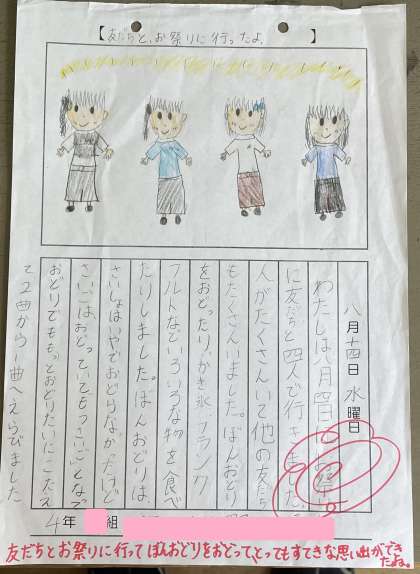 【友だちと、お祭りに行ったよ。】
八月十四日 水曜日
わたしは八月四日
に友だちと四人で行き
人がたくさんいて他の友だち
もたくさんいました。ぼんおどり
をおどったり、かき氷、フランク
フルトなどいろいろな物を食べ
たりしました。ぼんおどりは、
さいしょはいやでおどらなかったけど
さいごは、おどっていてもうさいごとなって
おどりでももっとおどりたいとこたえ
て2曲から1曲へえらびました
4年 組
友だちとお祭りに行ってぼんおどりをおどって、とってもすてきな思い出ができ
たよね。